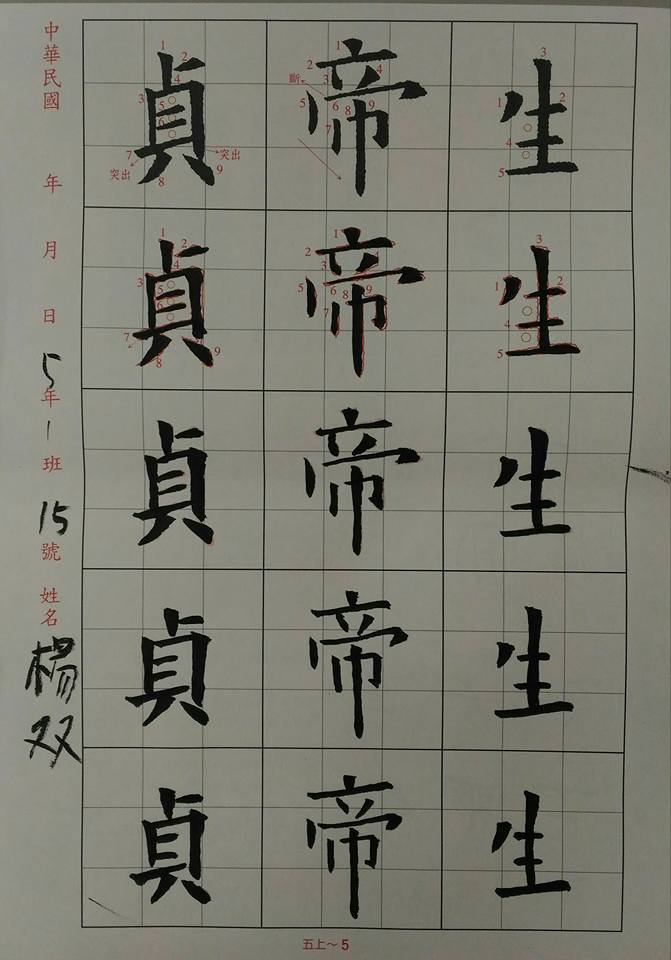 生生生生生
帝帝帝帝帝
貞貞貞貞貞
斷
突出
突出
中華民國 年 月 日 5年1班 15號 姓名 楊双
五上~5